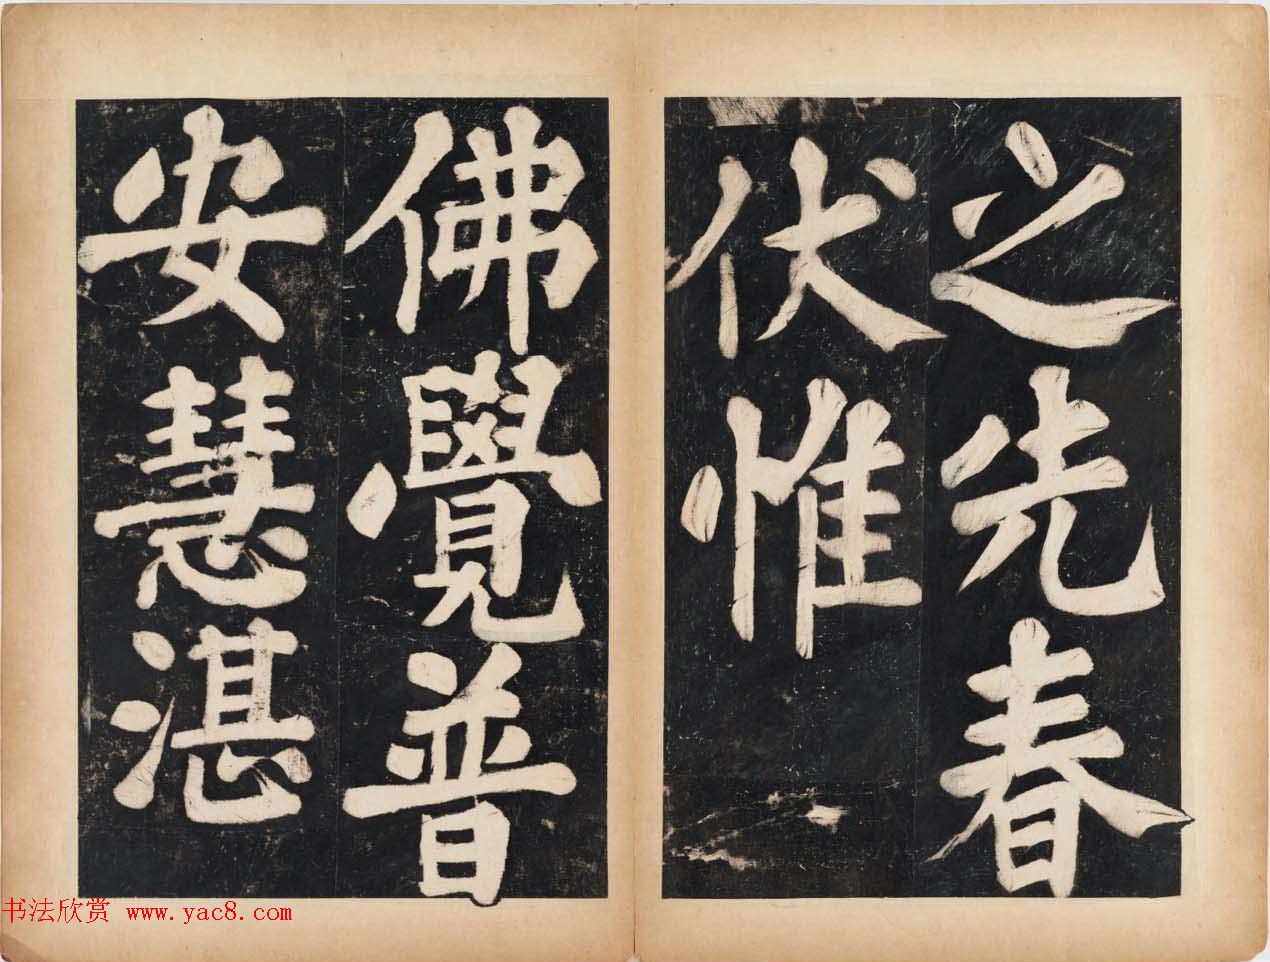 之先春
伏惟
佛覺普
安慧湛
书法欣赏 www.yac8.com